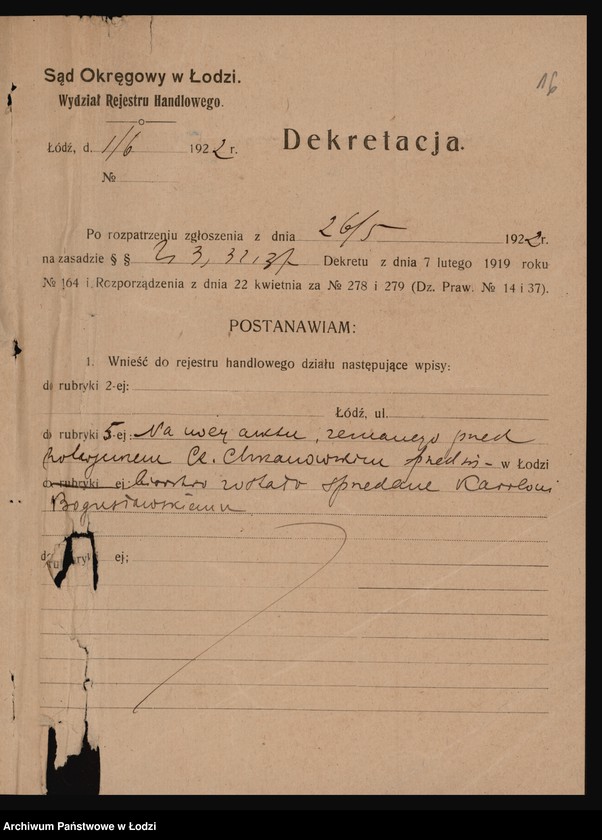 16
Sąd Okręgowy w Łodzi.
Wydział Rejestru Handlowego.
Łódź, d. 1/6 1922 r.
Dekretacja.
№
Po rozpatrzeniu zgłoszenia z dnia 26/5 1922r.
na zasadzie § § 3, 32, Dekretu z dnia 7 lutego 1919 roku
№ 164 i Rozporządzenia z dnia 22 kwietnia za № 278 i 279 (Dz. Praw. № 14 i 37).
POSTANAWIAM:
1. Wnieść do rejestru handlowego działu następujące wpisy:
do rubryki 2-ej:
Łódź, ul.
do rubryki 5-ej: Na mocy aktu, zeznanego przed
notarjuszem Chrzanowskim przedsię- w Łodzi
do rubryki ej: biorstwo zostało sprzedane Karolowi
Bogusławskiemu
do rubryki ej;
Archiwum Państwowe w Łodzi